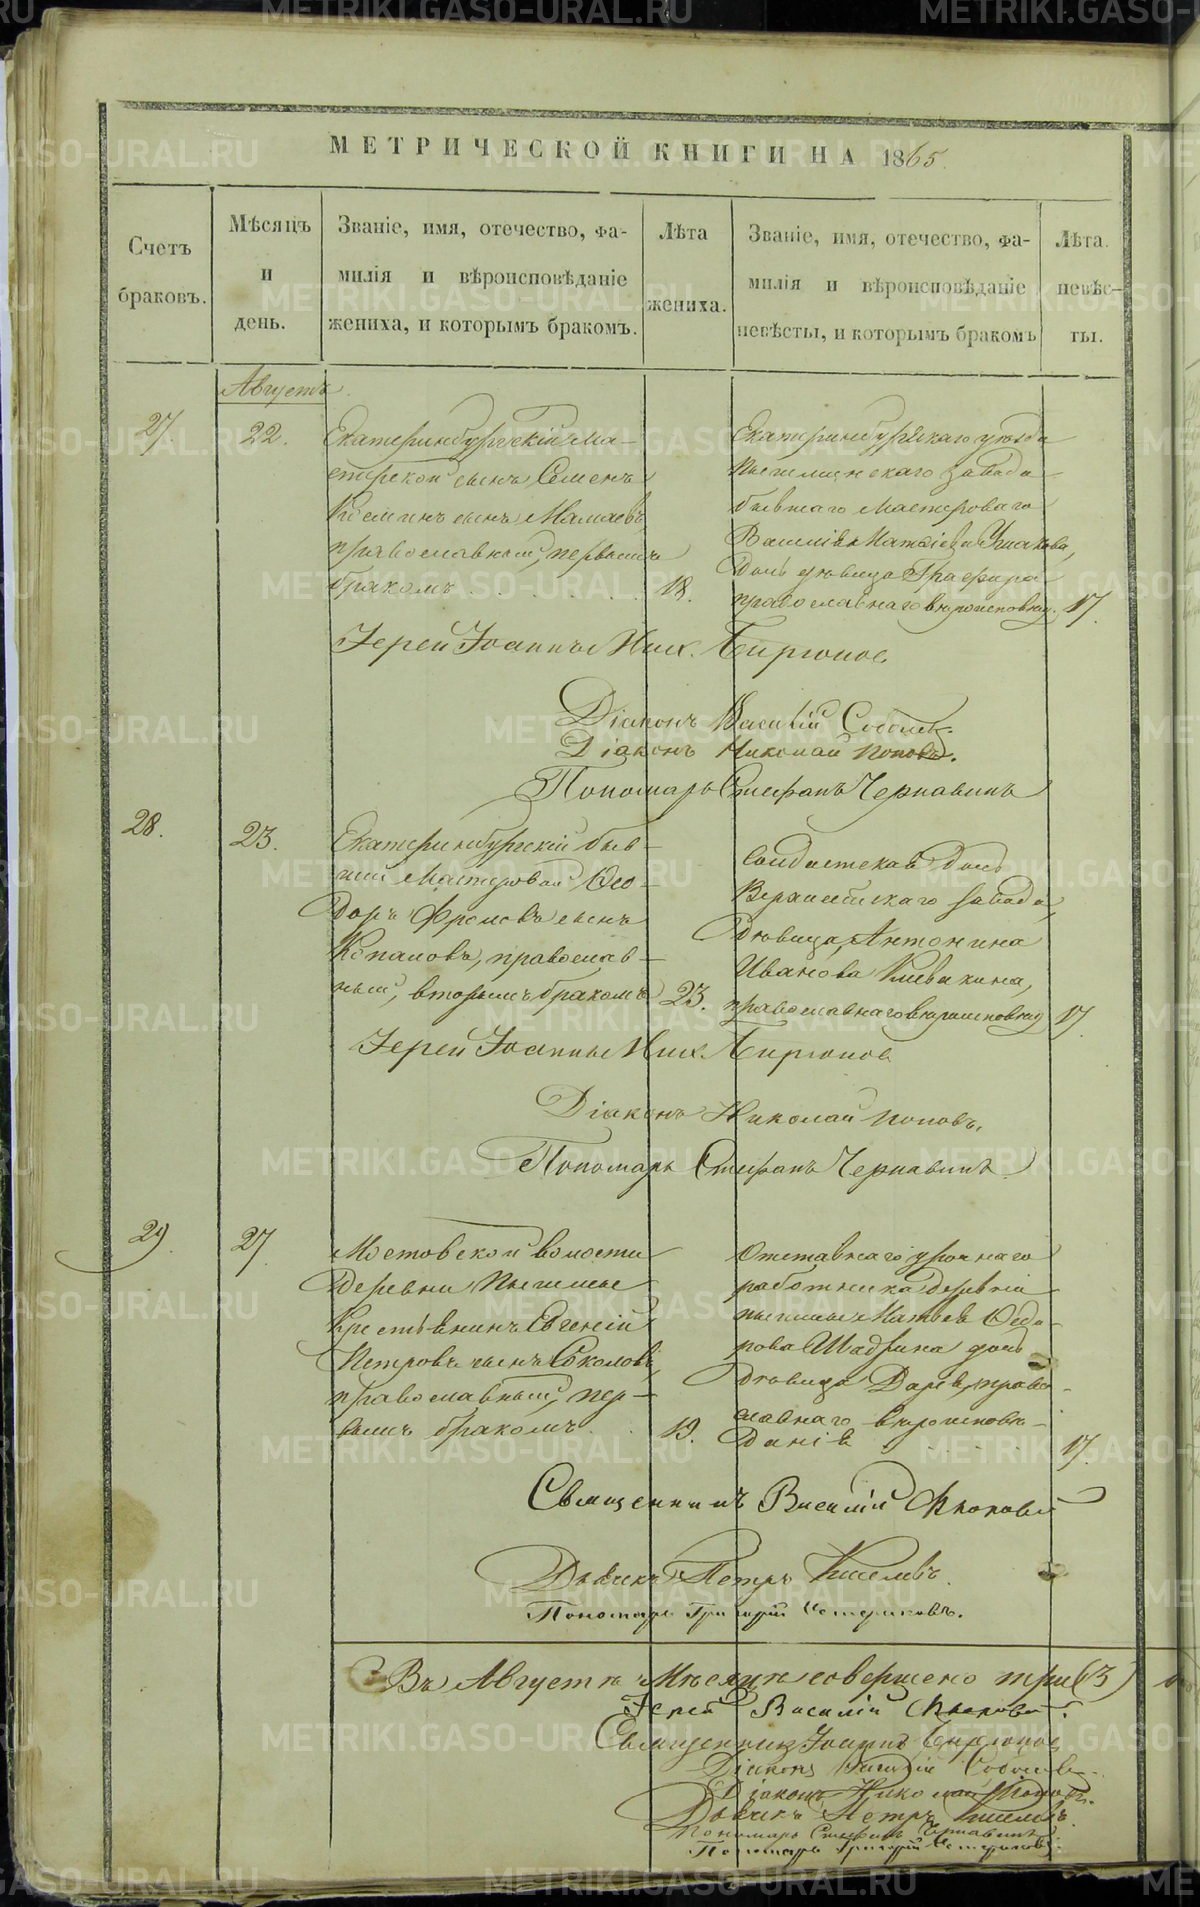 МЕТРИЧЕСКОЙ КНИГИ НА 1865.
Счетъ браковъ.
Мѣсяцъ и день.
Званіе, имя, отечество, фа-
милія и вѣроисповѣданіе
жениха, и которымъ бракомъ.
Лѣта жениха.
Званіе, имя, отечество, фа-
милія и вѣроисповѣданіе
невѣсты, и которымъ бракомъ
Лѣта невѣс-
ты.
Августъ
27.
22.
Екатеринбургскій ма-
стерской сынъ Семенъ
сынъ Мамаевъ,
православный, первымъ
бракомъ
18.
Екатеринбургскаго уѣзда
Пышминскаго завода
бывшаго мастероваго
Василія Матвѣева Ушакова,
дочь дѣвица Глафира
православнаго вѣроисповѣд.
17.
Іерей Іоаннъ Ник. Бирюков
Діаконъ Василій Соболевъ.
Діаконъ Николай Поповъ.
Пономарь Стефанъ Чернавинъ
28.
23.
Екатеринбургскій быв-
шій Мастеровой Ѳео-
доръ Фроловъ сынъ
Копаловъ, православ-
ный, вторымъ бракомъ
23.
Солдатская дочь
Верхнейскаго завода,
дѣвица, Антонина
Иванова Клевакина,
православнаго вѣроисповѣд
17.
Іерей Іоаннъ Ник. Бирюков
Діаконъ Николай Поповъ.
Пономарь Стефанъ Чернавинъ
29.
27
Мостовской волости
деревни Пышмы
Крестьянинъ Евгеній
Петровъ сынъ Соколовъ,
православный, пер-
вымъ бракомъ
19.
Отставнаго урочнаго
работника деревни
Пышмы Матвѣя Ѳедо-
рова Шадрина дочь
дѣвица Дарья, право-
славнаго вѣроисповѣ-
данія
17.
Священникъ Василій
Дьячекъ Петръ Киселевъ.
Пономарь Григорій
Въ Августѣ мѣсяцѣ совершено три (3)
Іерей Василій
Священникъ Іоаннъ Бирюков
Діаконъ Василій Соболевъ
Діаконъ Николай Поповъ.
Дьячекъ Петръ Киселевъ.
Пономарь Стефанъ Чернавинъ
Пономарь Григорій
METRIKI.GASO-URAL.RU